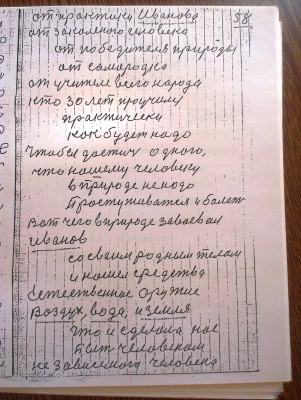 58
от практики Иванова
от закаленого человека
от победителя природы
от самородка
от учителя всего народа
кто 30 лет проучил
практически
как будет надо
чтобы достич одного,
что нашему человеку
в природе не надо
простуживатся и болеть
Вот чего в природе завоевал
Иванов
со своим родным телом
и нашел средства
Естественное оружие
воздух, вода, и земля
это и сделала нас
быть человеком
не зависимого человека